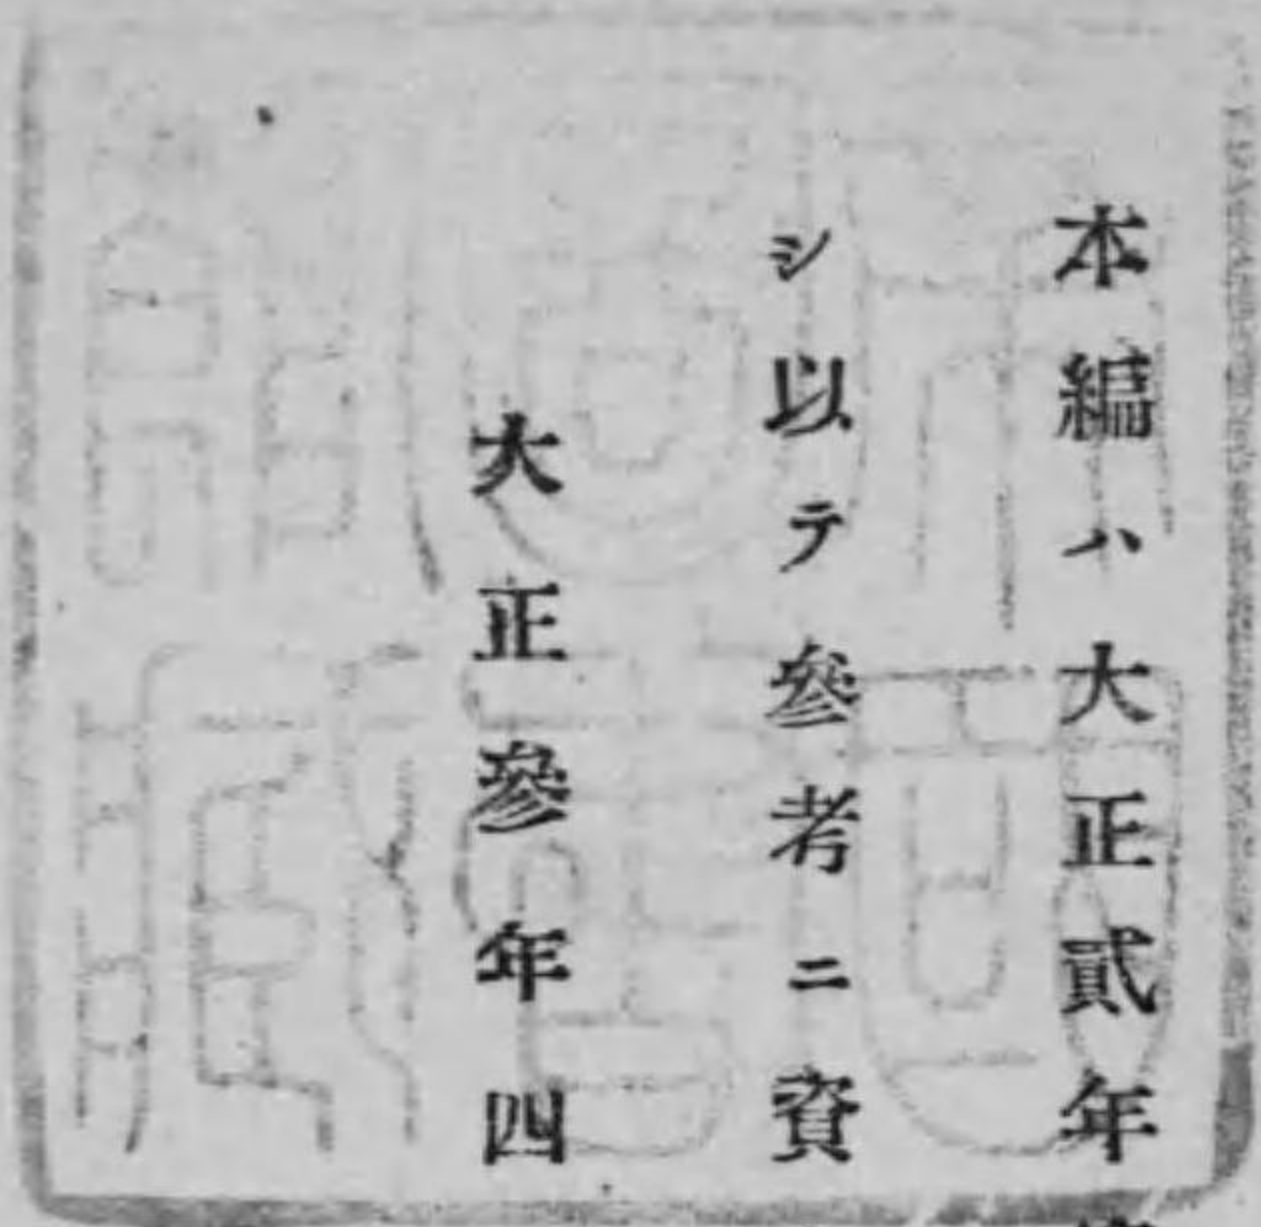 本編ハ大正貳年
シ以テ參考ニ資
大正參年四